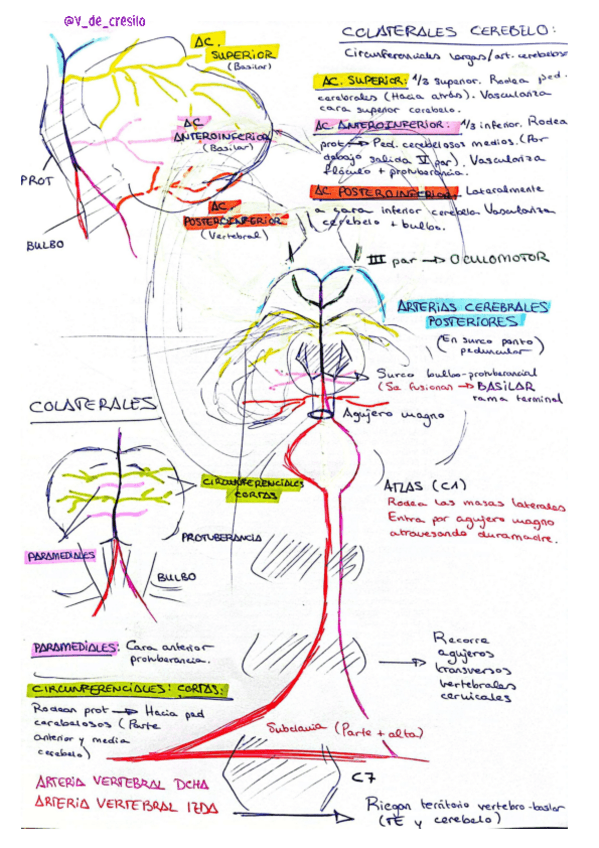 @V_de_cresilo
COLATERALES CEREBELO:
Circunferenciales largas/art. cerebelosas
AC. SUPERIOR: 1/3 superior. Rodea ped.
cerebrales (Hacia atrás). Vasculariza
cara superior cerebelo.
AC. ANTEROINFERIOR: 1/3 inferior. Rodea
prot → Ped. cerebelosos medios. (Por
debajo salida V par). Vasculariza
flóculo + protuberancia.
AC POSTEROINFERIOR: Lateralmente
a cara inferior cerebelo. Vasculariza
cerebelo + bulbo.
AC.
SUPERIOR
(Basilar)
AC
ANTEROINFERIOR
(Basilar)
PROT
AC.
POSTEROINFERIOR
(Vertebral)
BULBO
III par → OCULOMOTOR
ARTERIAS CEREBRALES
POSTERIORES
(En surco ponto
peduncular)
Surco bulbo-protuberancial
(Se fusionan → BASILAR
rama terminal
Agujero magno
ATLAS (C1)
Rodea las masas laterales
Entra por agujero magno
atravesando duramadre.
COLATERALES
CIRCUNFERENCIALES
CORTAS
PROTUBERANCIA
PARAMEDIALES
BULBO
PARAMEDIALES: Cara anterior
protuberancia.
CIRCUNFERENCIALES CORTAS:
Rodean prot → Hacia ped
cerebelosos (Parte
anterior y media
cerebelo)
Recorre
agujeros
transversos
vertebrales
cervicales
Subclavia (Parte + alta)
C7
ARTERIA VERTEBRAL DCHA
ARTERIA VERTEBRAL IZDA
Riegan territorio vertebro-basilar
(TE y cerebelo)